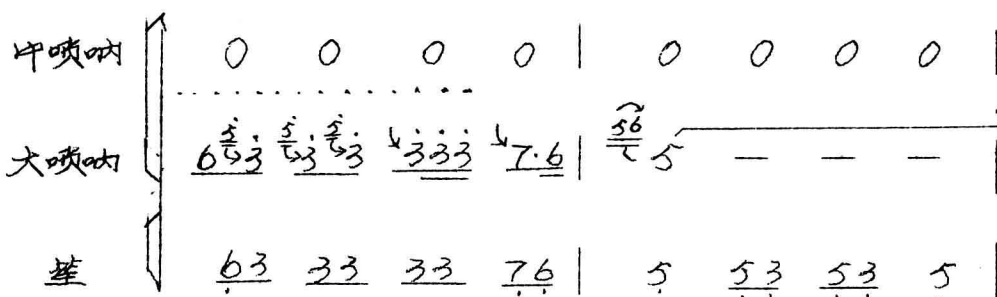 中唢呐 0 0 0 0 | 0 0 0 0 |
大唢呐 6 5 3 5 3 5 3 3 3 3 7·6 | 56 5 — — — |
笙 6 3 3 3 3 3 7 6 | 5 5 3 5 3 5 |